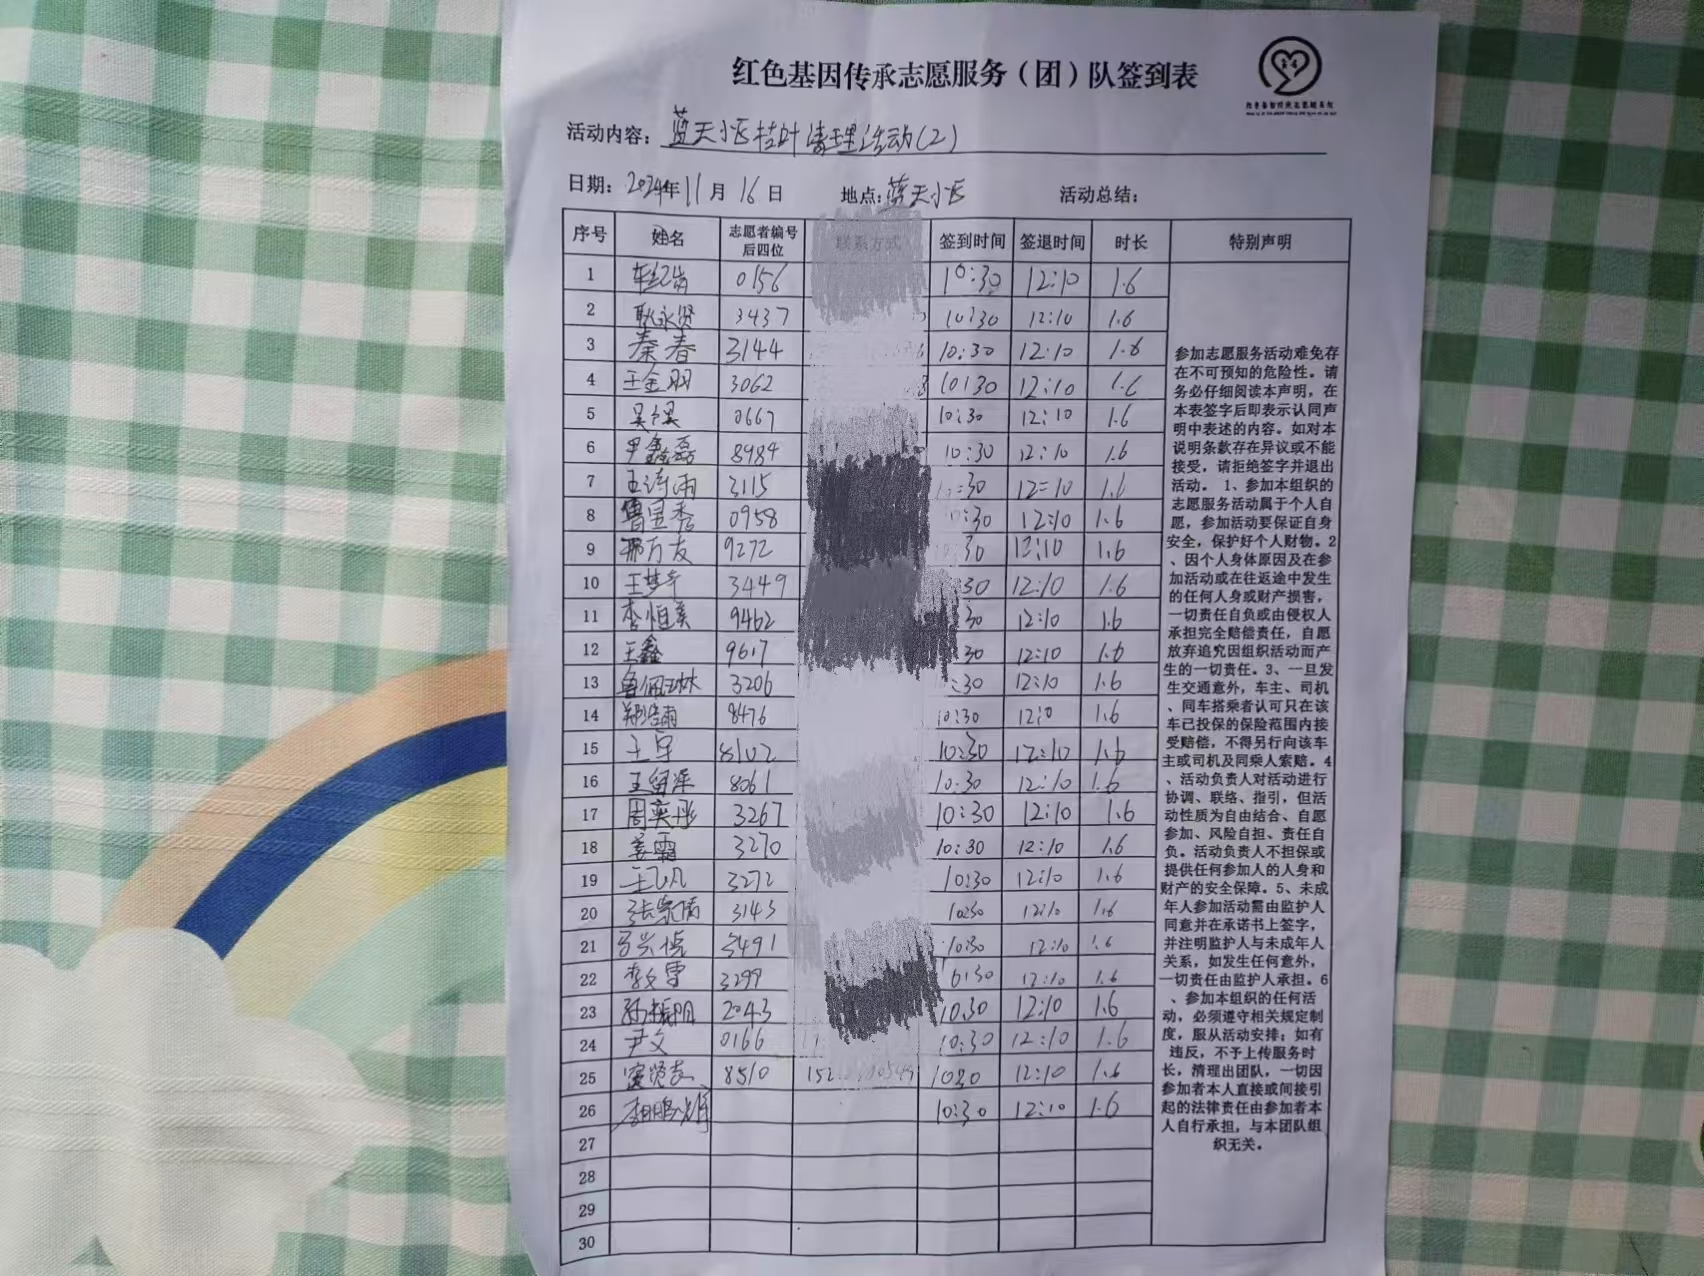 红色基因传承志愿服务（团）队签到表
活动内容：蓝天小区枯叶清理活动(2)
日期：2024年11月16日 地点：蓝天小区 活动总结：
序号 姓名 志愿者编号后四位 联系方式 签到时间 签退时间 时长 特别声明
1 0156 10:30 12:10 1.6
2 耿永贤 3437 10:30 12:10 1.6
3 秦春 3144 10:30 12:10 1.6
4 王金羽 3062 10:30 12:10 1.6
5 0667 10:30 12:10 1.6
6 鑫磊 8984 10:30 12:10 1.6
7 王诗雨 3115 :30 12:10 1.6
8 曹呈秀 0958 :30 12:10 1.6
9 邢万友 9272 30 12:10 1.6
10 王梦 3449 :30 12:10 1.6
11 李恒美 9462 30 12:10 1.6
12 王鑫 9617 30 12:10 1.6
13 鲁佩琳 3206 :30 12:10 1.6
14 郑浩雨 8476 10:30 12:10 1.6
15 王宇 8102 10:30 12:10 1.6
16 王 8061 10:30 12:10 1.6
17 周奕彤 3267 10:30 12:10 1.6
18 姜霜 3270 10:30 12:10 1.6
19 王飞凡 3272 10:30 12:10 1.6
20 张家 3143 10:30 12:10 1.6
21 兴虎 3491 10:30 12:10 1.6
22 李文雪 3299 10:30 12:10 1.6
23 孙振明 2043 10:30 12:10 1.6
24 尹文 0166 10:30 12:10 1.6
25 8510 10:30 12:10 1.6
26 10:30 12:10 1.6
27
28
29
30
参加志愿服务活动难免存
在不可预知的危险性。请
务必仔细阅读本声明，在
本表签字后即表示认同声
明中表述的内容。如对本
说明条款存在异议或不能
接受，请拒绝签字并退出
活动。 1、参加本组织的
志愿服务活动属于个人自
愿，参加活动要保证自身
安全，保护好个人财物。2
、因个人身体原因及在参
加活动或在往返途中发生
的任何人身或财产损害，
一切责任自负或由侵权人
承担完全赔偿责任，自愿
放弃追究因组织活动而产
生的一切责任。3、一旦发
生交通意外，车主、司机
、同车搭乘者认可只在该
车已投保的保险范围内接
受赔偿，不得另行向该车
主或司机及同乘人索赔。4
、活动负责人对活动进行
协调、联络、指引，但活
动性质为自由结合、自愿
参加、风险自担、责任自
负。活动负责人不担保或
提供任何参加人的人身和
财产的安全保障。5、未成
年人参加活动需由监护人
同意并在承诺书上签字，
并注明监护人与未成年人
关系，如发生任何意外，
一切责任由监护人承担。6
、参加本组织的任何活
动，必须遵守相关规定制
度，服从活动安排；如有
违反，不予上传服务时
长，清理出团队，一切因
参加者本人直接或间接引
起的法律责任由参加者本
人自行承担，与本团队组
织无关。